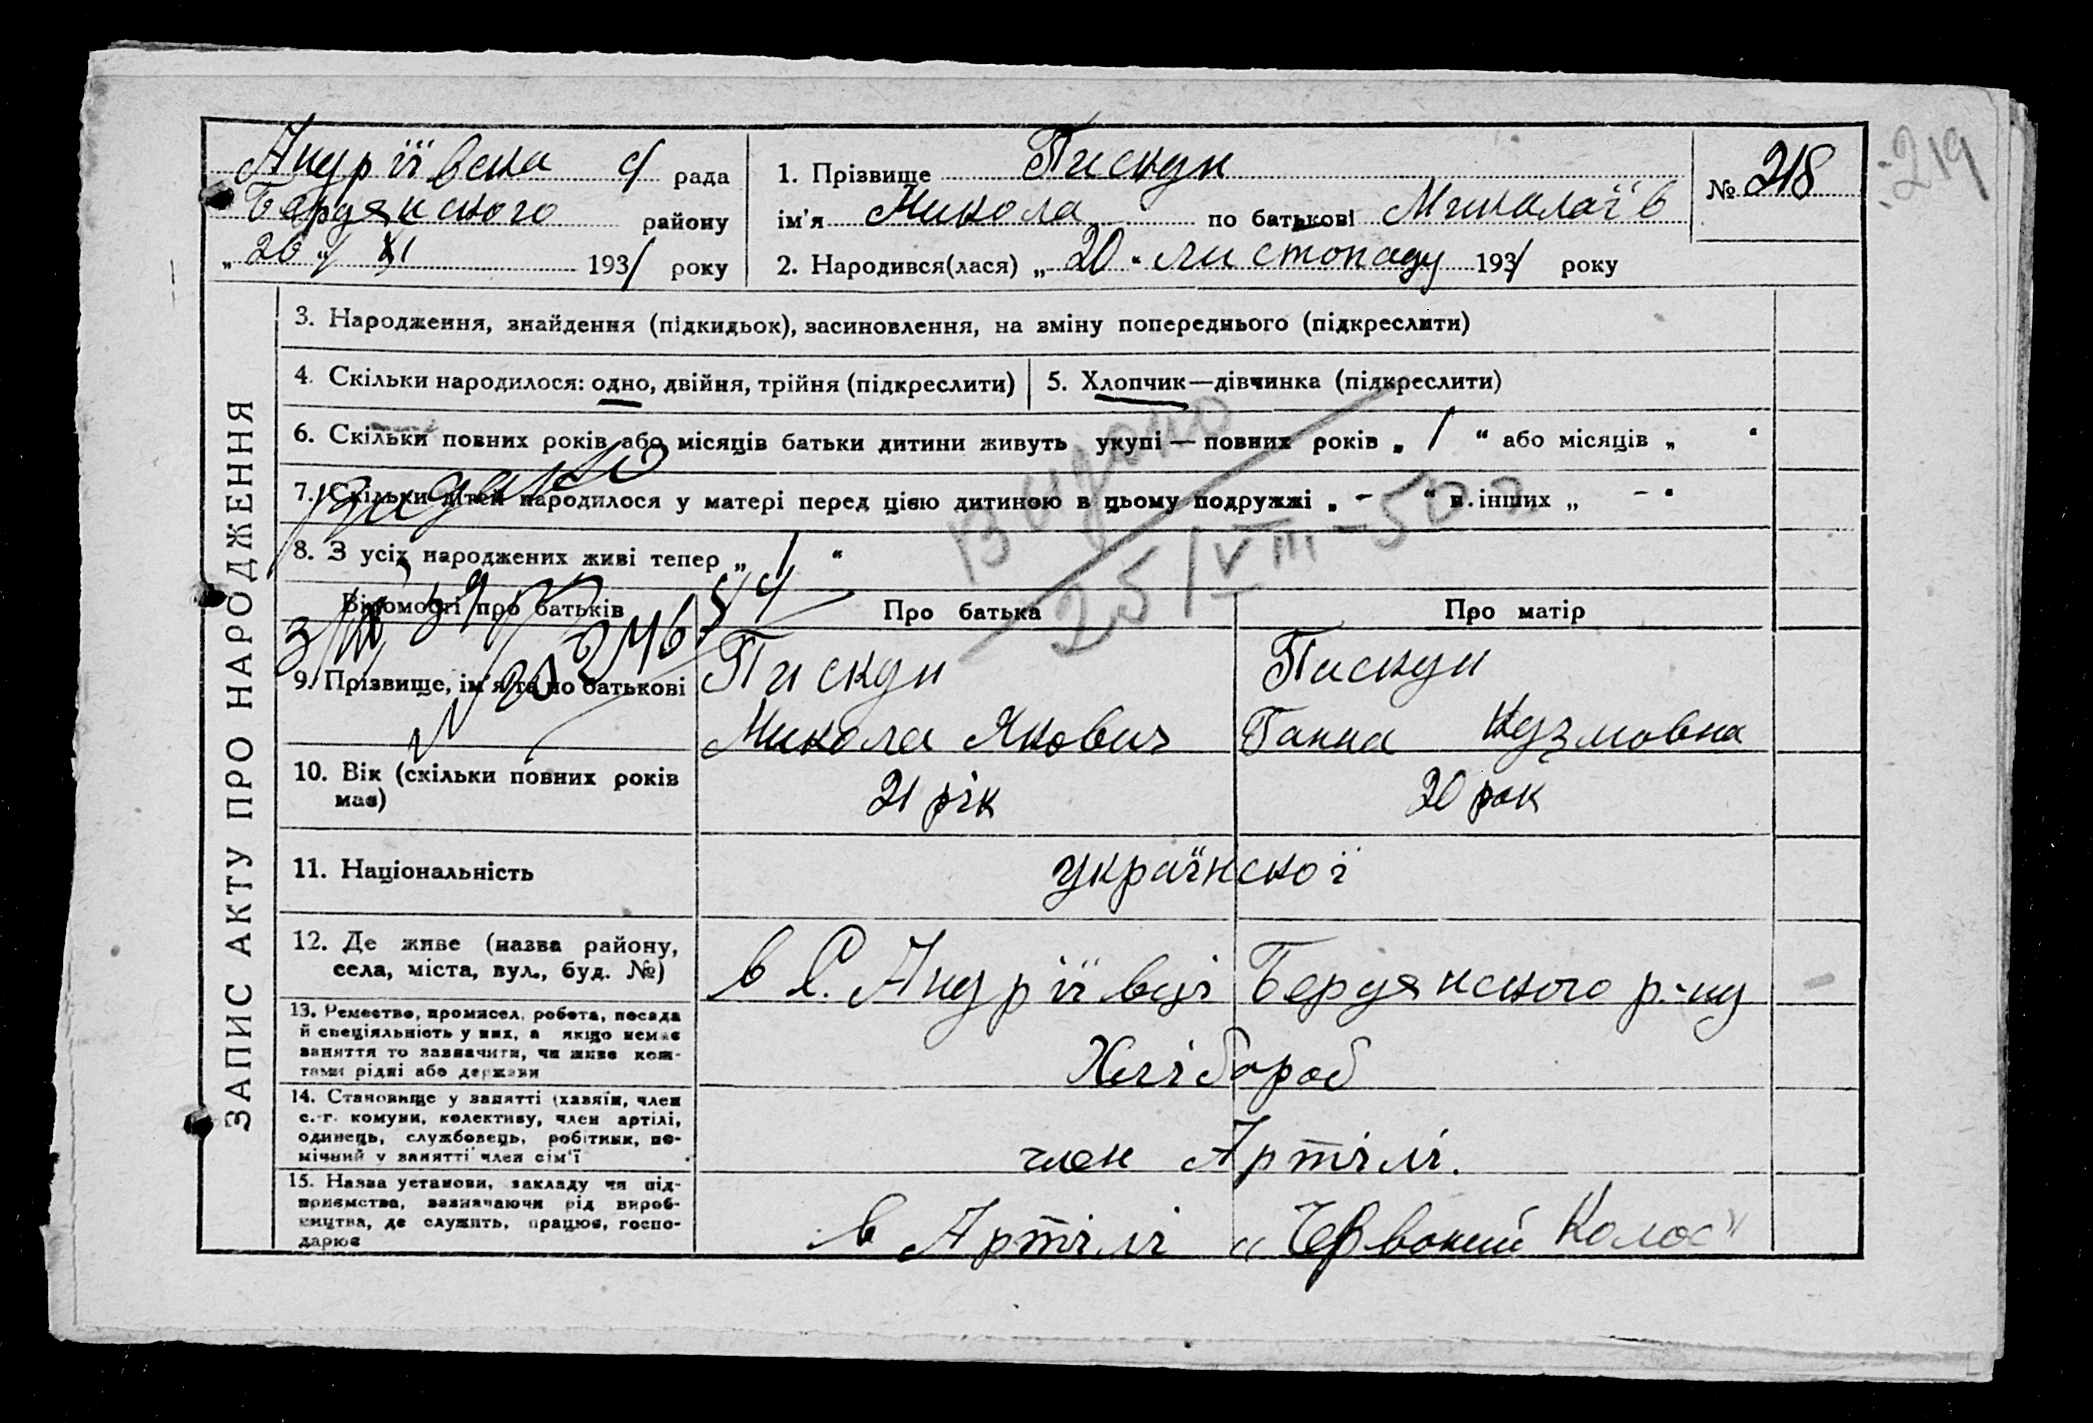 219
Андріївська с/ рада
Бердянського району
„ 26 " XI 1931 року
1. Прізвище Пискун
ім'я Микола по батькові Миколаїв
2. Народився(лася) „ 20 " листопаду 1931 року
№ 218
ЗАПИС АКТУ ПРО НАРОДЖЕННЯ
3. Народження, знайдення (підкидьок), засиновлення, на зміну попереднього (підкреслити)
4. Скільки народилося: одно, двійня, трійня (підкреслити)
5. Хлопчик—дівчинка (підкреслити)
6. Скільки повних років або місяців батьки дитини живуть укупі — повних років „ 1 “ або місяців „ “
7. Скільки дітей народилося у матері перед цією дитиною в цьому подружжі „ - “ в інших „ - “
8. З усіх народжених живі тепер „ 1 “
Видано
25/VIII-50
Видано
Відомості про батьків
Про батька
Про матір
9. Прізвище, ім'я та по батькові
Пискун
Микола Якович
Пискун
Ганна Кузмовна
10. Вік (скільки повних років має)
21 рік
20 рок
11. Національність
українскої
12. Де живе (назва району, села, міста, вул., буд. №)
в С. Андріївці Бердянского р-ну
13. Ремество, промисел, робота, посада
й спеціяльність у них, а якщо немає
заняття то зазначити, чи живе кош-
тами рідні або держави
Хлібороб
14. Становище у занятті (хазяїн, член
с.-г. комуни, колективу, член артілі,
одинець, службовець, робітник, по-
мічний у занятті член сім'ї
член Артілі.
15. Назва установи, закладу чи під-
приємства, зазначаючи рід вироб-
ництва, де служить, працює, госпо-
дарює
в Артілі „Червоний Колос"